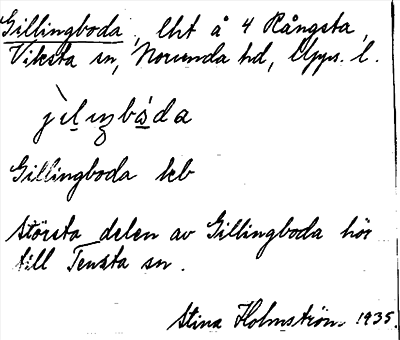 Gillingboda, lht å 4 Rångsta,
Viksta sn, Norunda hd, Upps. l.
Gillingboda kb
största delen av Gillingboda hör
till Tensta sn.
Stina Holmström 1935.